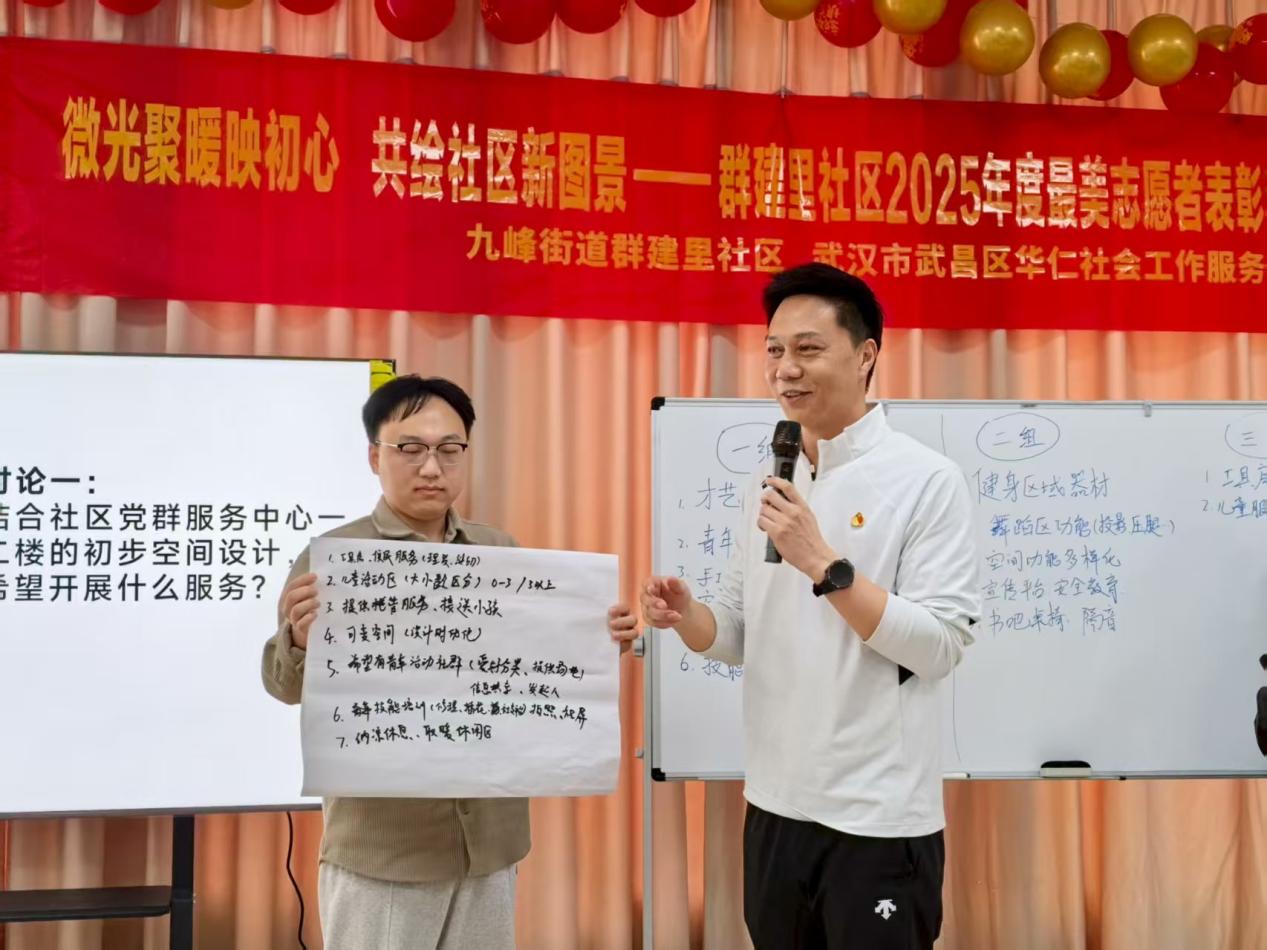 微光聚暖映初心 共绘社区新图景——群建里社区2025年度最美志愿者表彰
九峰街道群建里社区 武汉市武昌区华仁社会工作服务
讨论一：
结合社区党群服务中心一
二楼的初步空间设计，
希望开展什么服务？
1. 工具房、便民服务(理发、
2. 儿童活动区(大小龄区分) 0-3 /3以上
3. 提供托管服务、接送小孩
4. 可变空间(设计时功能)
5. 希望有青年活动社群(爱好分类、提供场地)
信息共享、发起人
6. 技能培训(修理、插花、
7. 纳凉休息、取暖休闲区
一组
1. 才艺
2. 青年
3. 手工
6. 技能
二组
健身区域器材
舞蹈区功能(投影 压腿)
空间功能多样化
宣传平台 安全教育
书吧桌椅 隔音
三
1 工具房
2. 儿童服